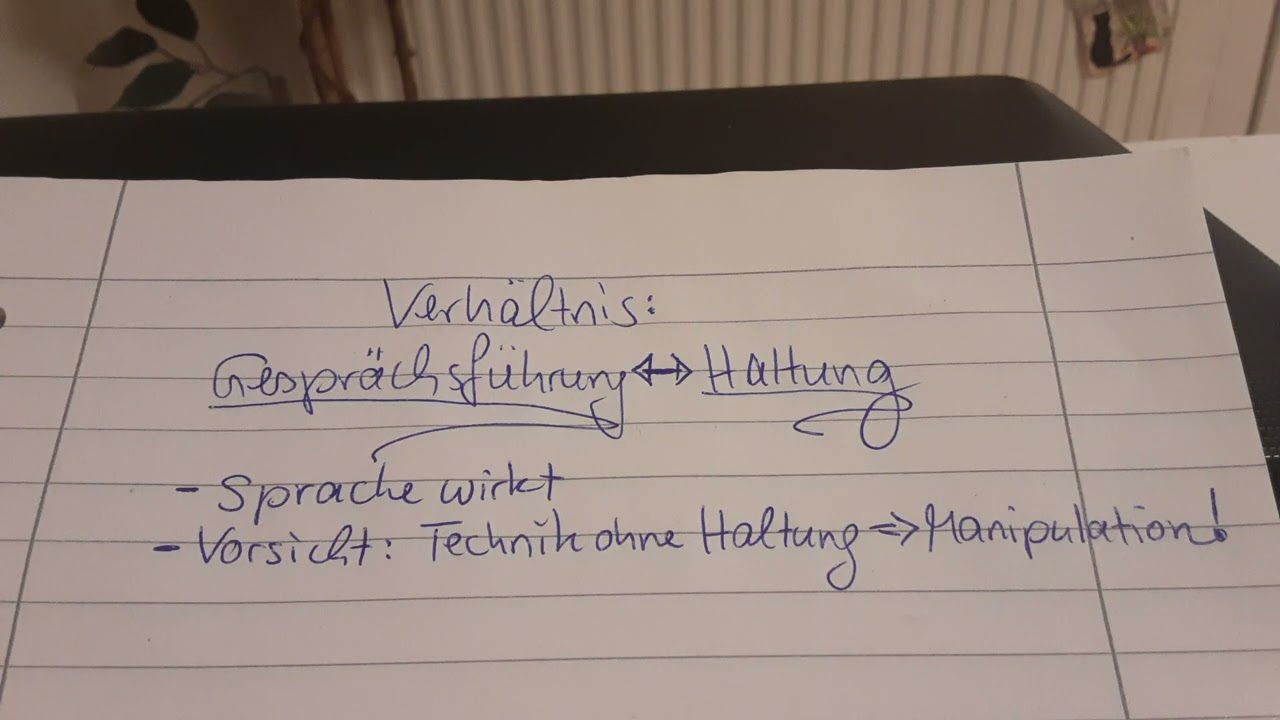 Verhältnis:
Gesprächsführung ↔ Haltung
- Sprache wirkt
- Vorsicht: Technik ohne Haltung => Manipulation!